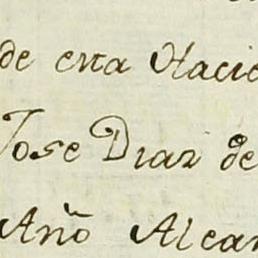 de esta Hacie
Jose Diaz de
Año Alcan